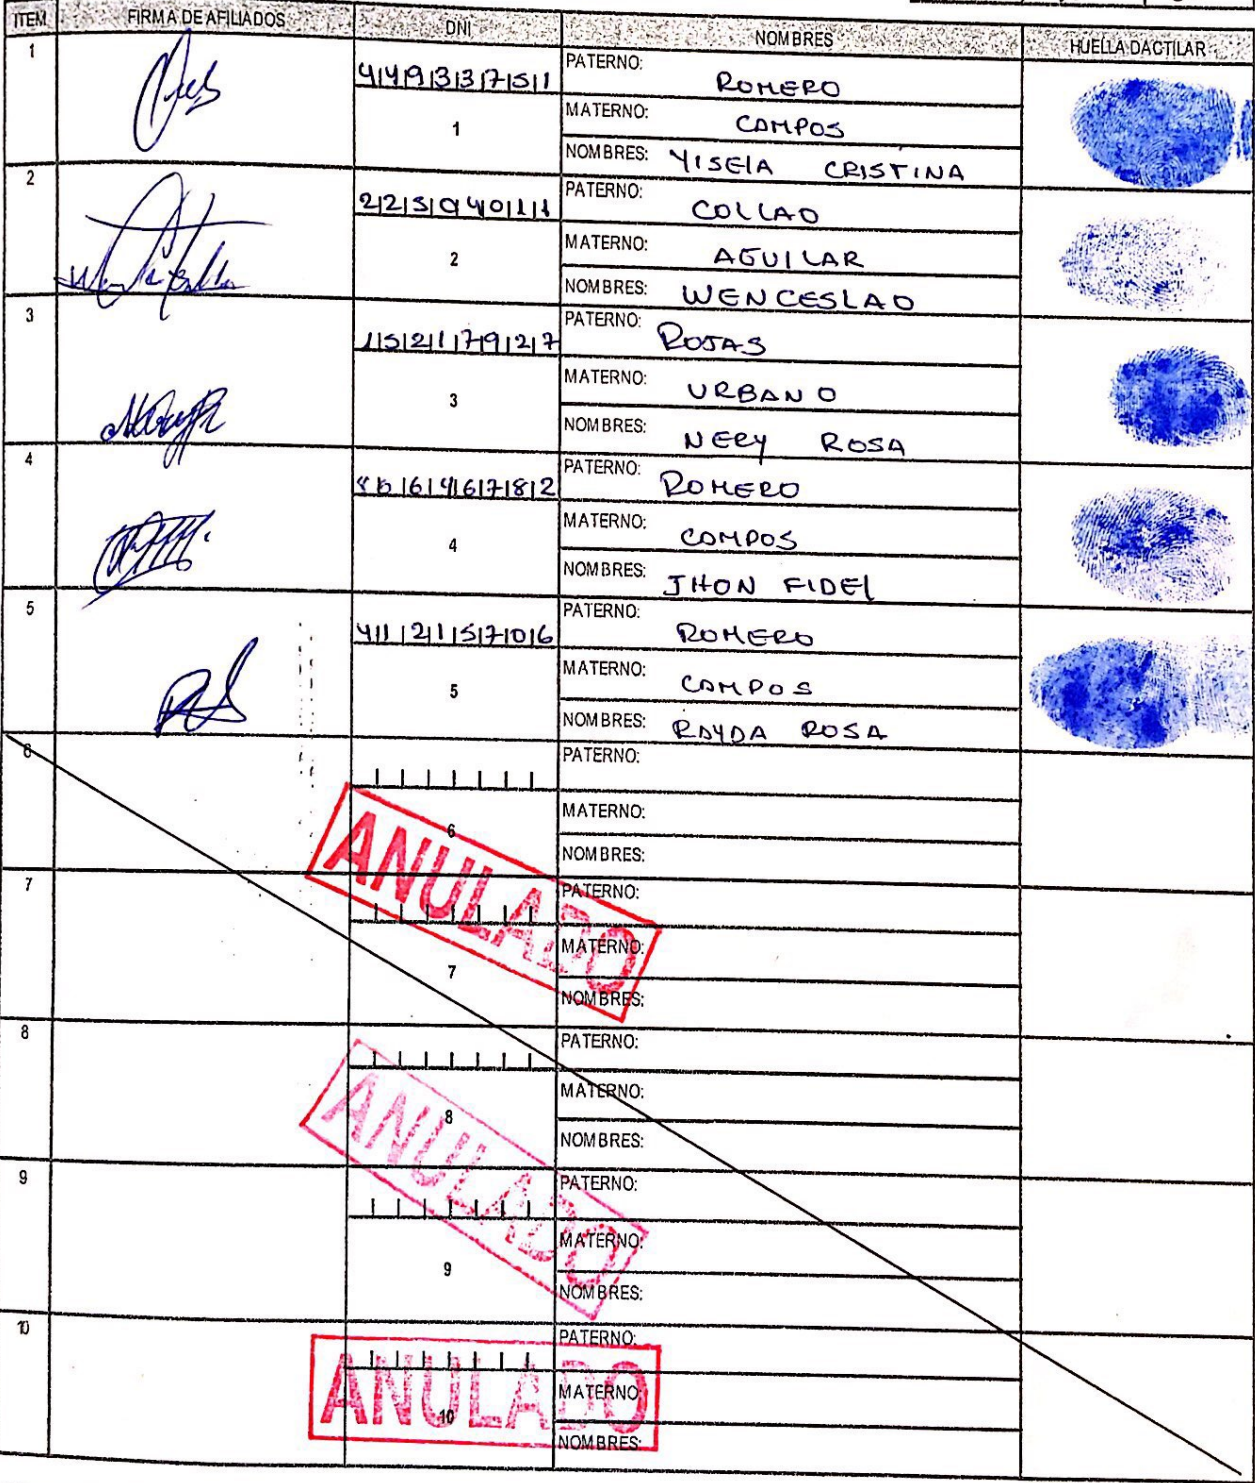 ITEM FIRMA DE AFILIADOS DNI NOMBRES HUELLA DACTILAR
1 44933751 PATERNO: ROMERO
1 MATERNO: CAMPOS
NOMBRES: YISELA CRISTINA
2 22504011 PATERNO: COLLAO
2 MATERNO: AGUILAR
NOMBRES: WENCESLAO
3 15217927 PATERNO: ROJAS
3 MATERNO: URBANO
NOMBRES: NERY ROSA
4 PATERNO: ROMERO
4 MATERNO: COMPOS
NOMBRES: JHON FIDEL
5 41215706 PATERNO: ROMERO
5 MATERNO: CAMPOS
NOMBRES: RAYDA ROSA
6 PATERNO:
6 MATERNO:
NOMBRES:
ANULADO
7 PATERNO:
7 MATERNO:
NOMBRES:
8 PATERNO:
8 MATERNO:
NOMBRES:
ANULADO
9 PATERNO:
9 MATERNO:
NOMBRES:
10 PATERNO:
ANULADO
10 MATERNO:
NOMBRES: